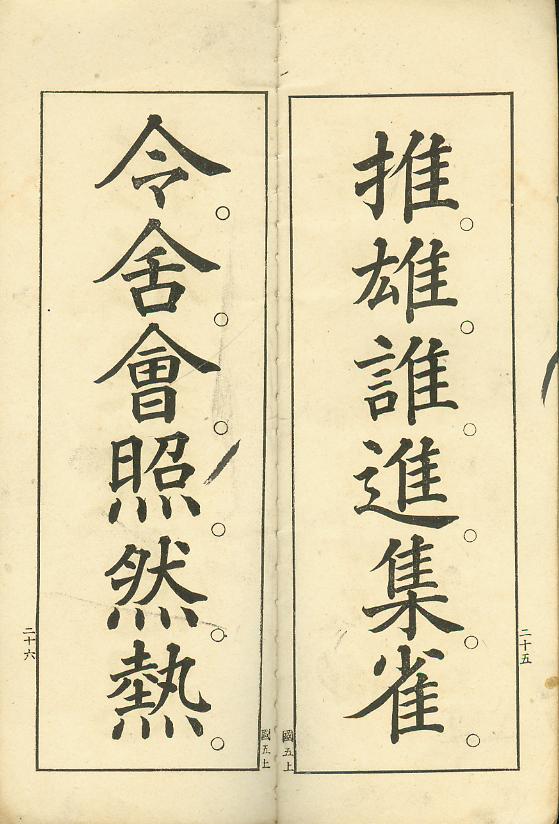 推雄誰進集雀
二十五
國五上
令舍會照然熱
二十六
國五上